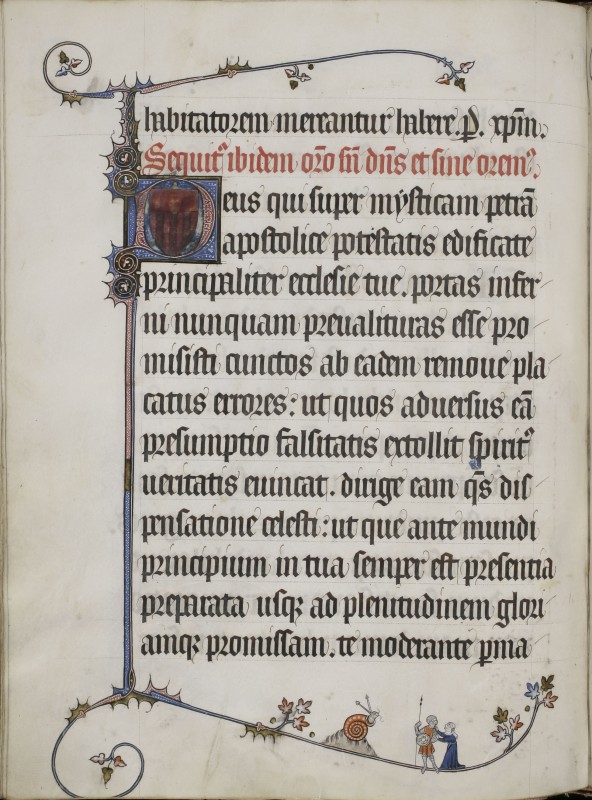 habitatorem mereantur habere. P. xpm̄.
Sequit᷑ ibidem orō sn̄ dn̄s et sine orem᷑.
Deus qui super mysticam petrā
apostolice potestatis edificate
principaliter ecclesie tue. portas infer-
ni nunquam preualituras esse pro-
misisti cunctos ab eadem remoue pla-
catus errores: ut quos aduersus eā
presumptio falsitatis extollit spirit᷒
ueritatis euincat. dirige eam q̄s dis-
pensatione celesti: ut que ante mundi
principium in tua semper est presentia
preparata usqꝫ ad plenitudinem glori-
amqꝫ promissam. te moderante ꝑma-